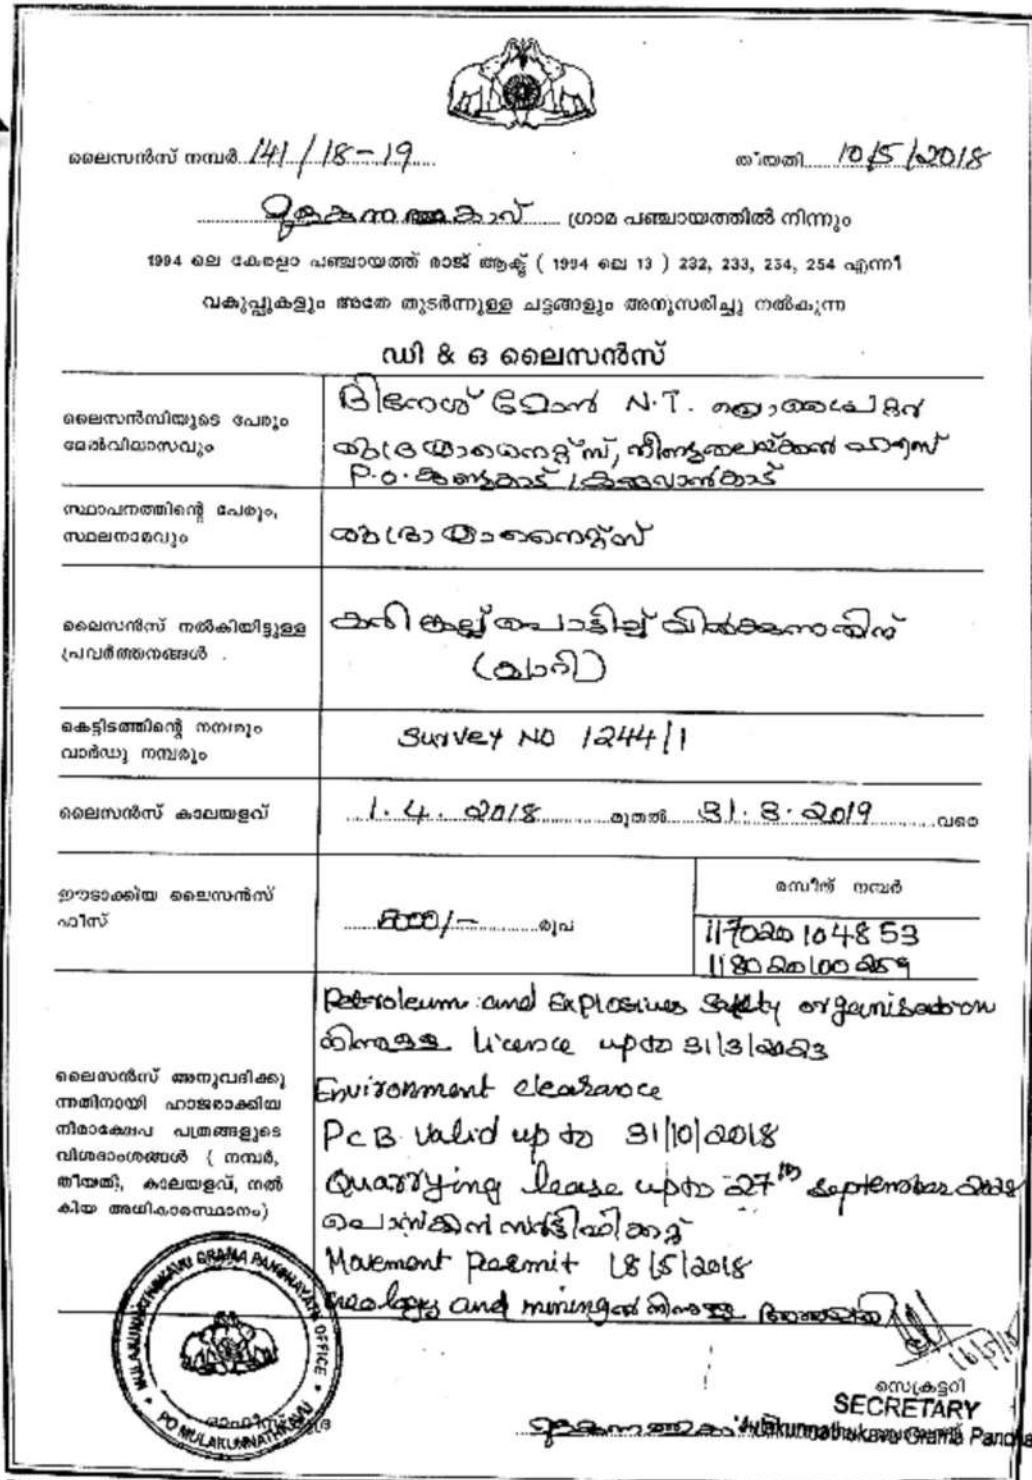 ലൈസൻസ് നമ്പർ 141/18-19
തീയതി 10/5/2018
മുളകുന്നത്തുകാവ് ഗ്രാമ പഞ്ചായത്തിൽ നിന്നും
1994 ലെ കേരളാ പഞ്ചായത്ത് രാജ് ആക്ട് ( 1994 ലെ 13 ) 232, 233, 234, 254 എന്നീ
വകുപ്പുകളും അതേ തുടർന്നുള്ള ചട്ടങ്ങളും അനുസരിച്ചു നൽകുന്ന
ഡി & ഒ ലൈസൻസ്
ലൈസൻസിയുടെ പേരും
മേൽവിലാസവും
ദിനേശ് മോൻ N.T.
ഹൗസ്
P.O.
സ്ഥാപനത്തിന്റെ പേരും,
സ്ഥലനാമവും
ലൈസൻസ് നൽകിയിട്ടുള്ള
പ്രവർത്തനങ്ങൾ
കരിങ്കല്ല് പൊട്ടിച്ച് വിൽക്കുന്നതിന്
(ക്വാറി)
കെട്ടിടത്തിന്റെ നമ്പരും
വാർഡു നമ്പരും
Survey NO 1244/1
ലൈസൻസ് കാലയളവ്
1.4.2018 മുതൽ 31.3.2019 വരെ
ഈടാക്കിയ ലൈസൻസ്
ഫീസ്
രൂപ
രസീത് നമ്പർ
117020104853
118020100259
ലൈസൻസ് അനുവദിക്കു
ന്നതിനായി ഹാജരാക്കിയ
നിരാക്ഷേപ പത്രങ്ങളുടെ
വിശദാംശങ്ങൾ ( നമ്പർ,
തീയതി, കാലയളവ്, നൽ
കിയ അധികാരസ്ഥാനം)
Petroleum and Explosives Safety organisation
നിന്നുള്ള licence upto 31/3/2023
Environment clearance
PCB Valid up to 31/10/2018
Quarrying lease upto 27th September 2028
പൊസഷൻ സർട്ടിഫിക്കറ്റ്
Movement Permit 18/5/2018
Geology and mining ൽ നിന്നുള്ള
MULAKUNNATHUKAVU GRAMA PANCHAYATH OFFICE
PO MULAKUNNATHKAVU
സെക്രട്ടറി
SECRETARY
മുളകുന്നത്തുകാവ്
Mulakunnathukavu Grama Pancha